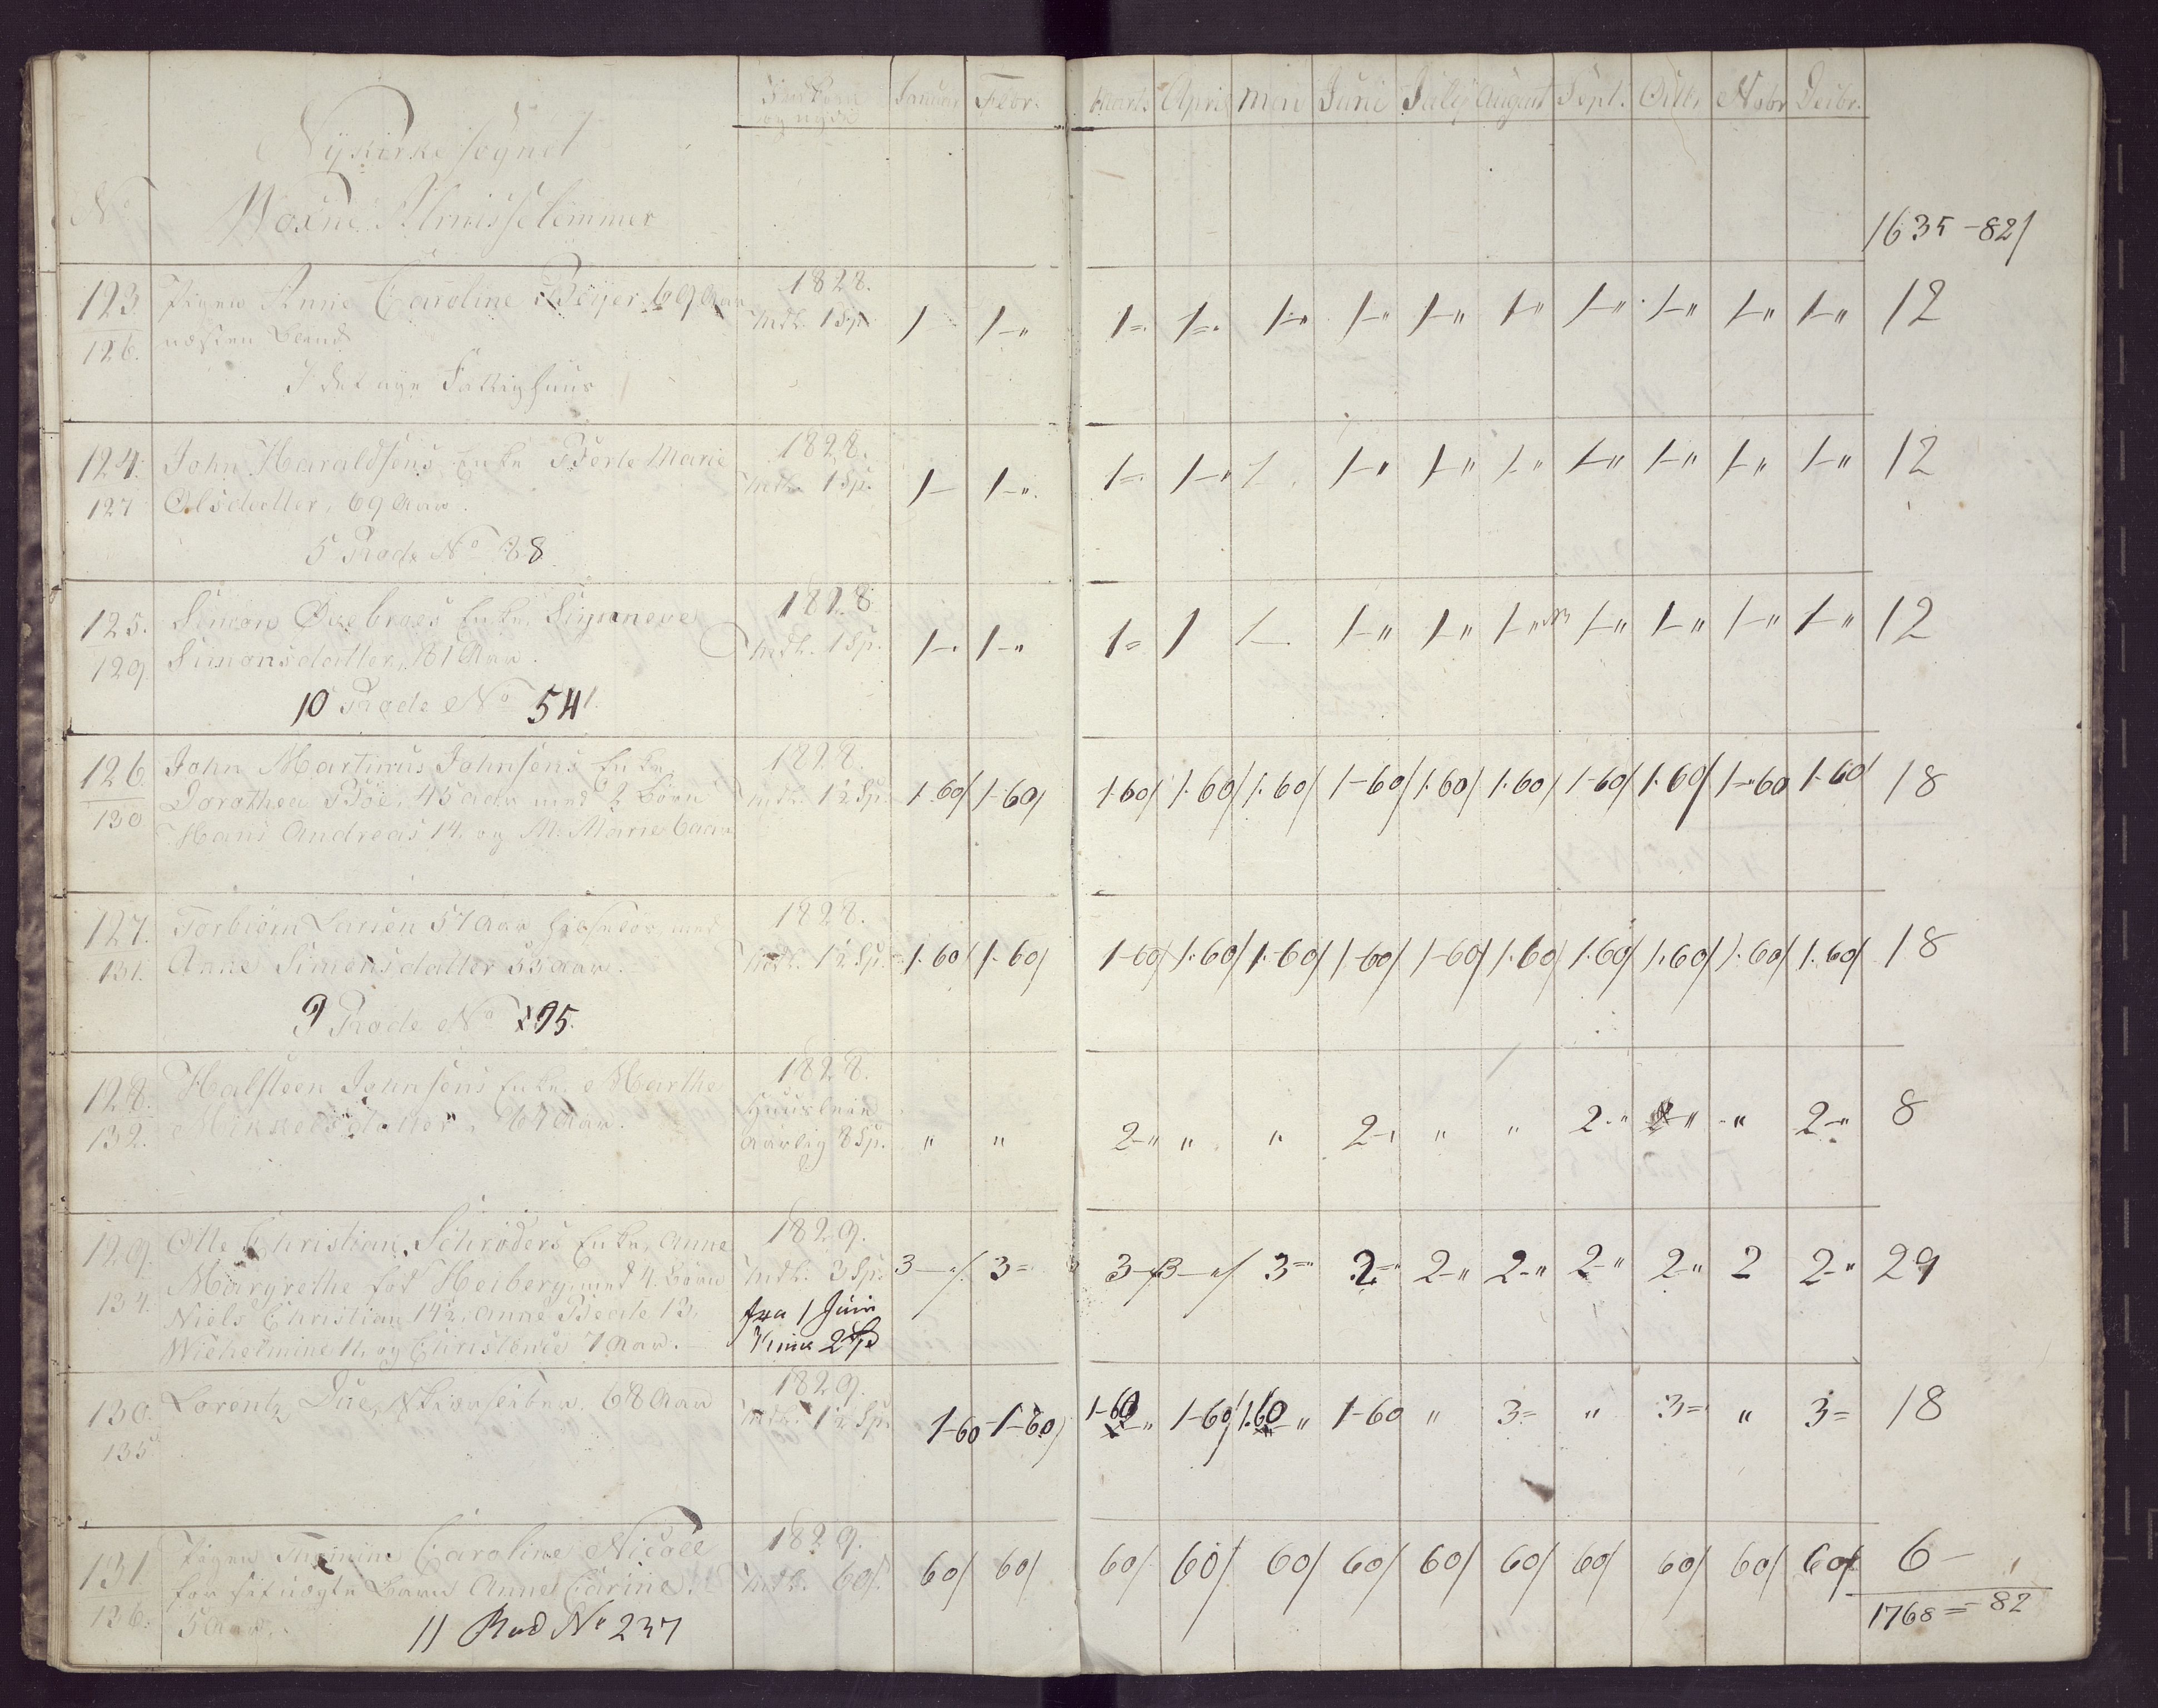 Januar Febr. Marts April Mai Junii July August Sept. Octbr. Novbr. Decbr.
Nykirke Sognet
No Voxne Almisselemmer
1635-82/
123. Pigen Anne Caroline Beyer 69 Aar 1828.
126. næsten Blind Mdl. 1 Sp. 1- 1-" 1=. 1=. 1-" 1-" 1-" 1-" 1-" 1-" 1-" 1-" 12
I det nye Fattighuus
124. John Haraldsens Enke Berte Marie 1828.
127 Olsdatter, 69 Aar. Mdl. 1 Sp. 1- 1-". 1=. 1-" 1 1-" 1-" 1-" 1-" 1-" 1-" 1-" 12
5 Rode No 88
125. Simon Enke, Simonsdatter, 81 Aar. 1828
129 Mdl. 1 Sp. 1-. 1-" 1= 1 1-. 1-" 1-" 1-" 1-" 1-" 1-" 1-" 12
10 Rode No 541.
126. John Martinus Johnsens Enke, 1828.
130 Dorothea Böe, 45 Aar med 2 Börn Mdl. 1½ Sp. 1-60/ 1-60/ 1-60/ 1-60/ 1-60/ 1-60/ 1-60/ 1-60/ 1-60/ 1-60/ 1-"60 1-60/ 18
Hans Andreas 14. og M. Marie 6 Aar
127. Torbiörn Larsen 57 Aar med 1828.
131. Anne Simensdatter 55 Aar. Mdl. 1½ Sp. 1-60/ 1-60/ 1-60/ 1-60/ 1-60/ 1-60/ 1-60/ 1-60/ 1-60/ 1-60/ 1-60/ 1-60/ 18
9 Rode No 295.
128. Halsteen Johnsens Enke, Marthe 1828.
132. Mikkelsdatter, 67 Aar. Huusleie
aarlig 8 Sp. " " 2-" " " 2-" " " 2-" " " 2-" 8
129. Otte Christian Schröders Enke, Anne 1829.
134. Margrethe fød Heiberg, med 4 Börn Mdl. 3 Sp. 3-"/. 3= 3-"/ 3-"/ 3=" 2=" 2-" 2-" 2-" 2-" 2 2-" 29
Niels Christian 14½, Anne Beate 13, fra 1 Juni
Wilhelmine 11. og Christence 7 Aar. 2 Sp
130. Lorentz Due, 68 Aar 1829.
135 Mdl. 1½ Sp. 1-60 1-60/ 1-60 1-60/ 1.60 1-60 " 3= " 3= " 3= 18
131. Pigen Caroline Nicoll 1829.
136. for sit uægte Barn Anne Carine, Mdl. 60/. 60/ 60/ 60/ 60/ 60/ 60/ 60/ 60/ 60/ 60/ 60/ 60/ 6-
5 Aar. 11 Rod No 237
1768=-82